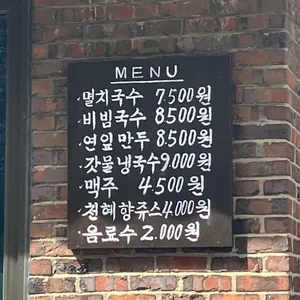 MENU
·멸치국수 7.500원
·비빔국수 8.500원
·연잎만두 8.500원
·갓물냉국수 9.000원
·맥주 4.500원
·천혜향쥬스 4.000원
·음료수 2.000원